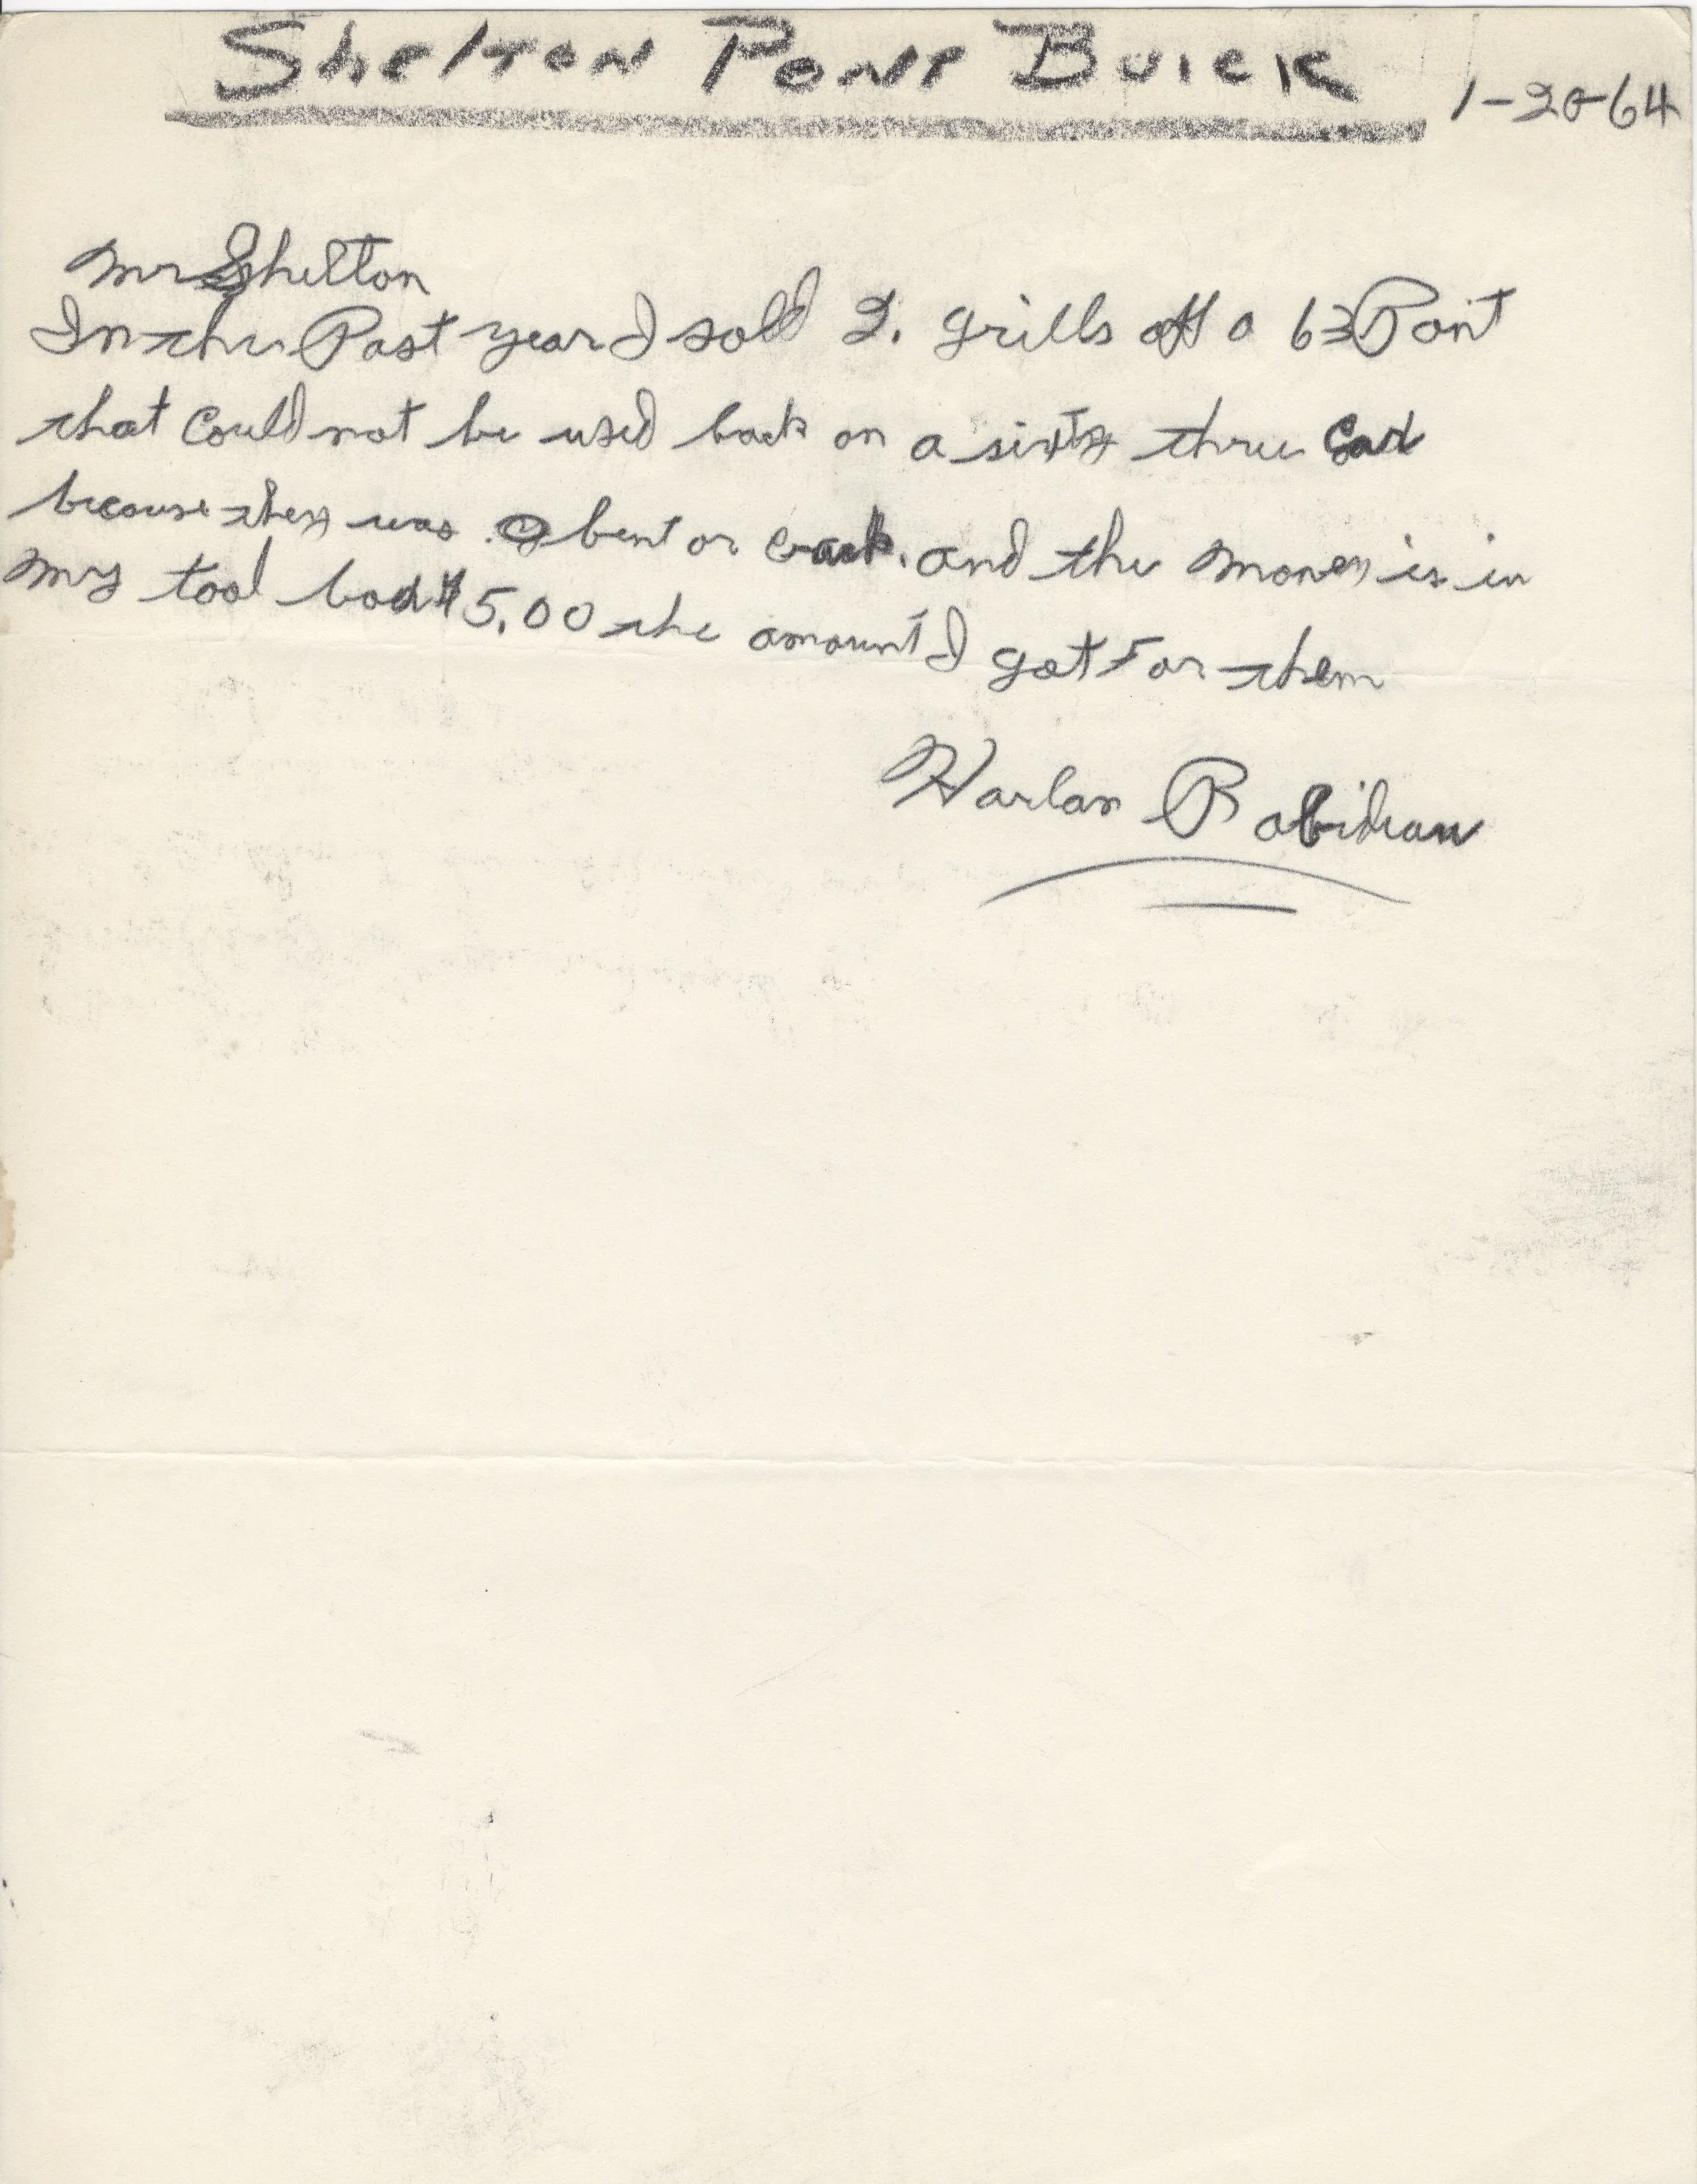 Shelton Pont Buick
1-20-64
Mr Shelton
In the Past year I sold 2. grills off a 63 Pont
that Could not be used back on a sixty three Car
because they was bent or crack. and the money is in
my tool box $5.00 the amount I got For them
Harlan Robideau